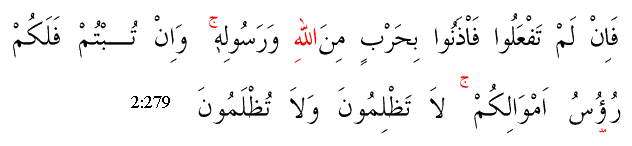 فَاِنْ لَمْ تَفْعَلُوا فَاْذَنُوا بِحَرْبٍ مِنَ اللّٰهِ وَرَسُولِهٖۚ وَاِنْ تُـبْتُمْ فَلَكُمْ
رُؤُ۫سُ اَمْوَالِكُمْۚ لَا تَظْلِمُونَ وَلَا تُظْلَمُونَ 2:279